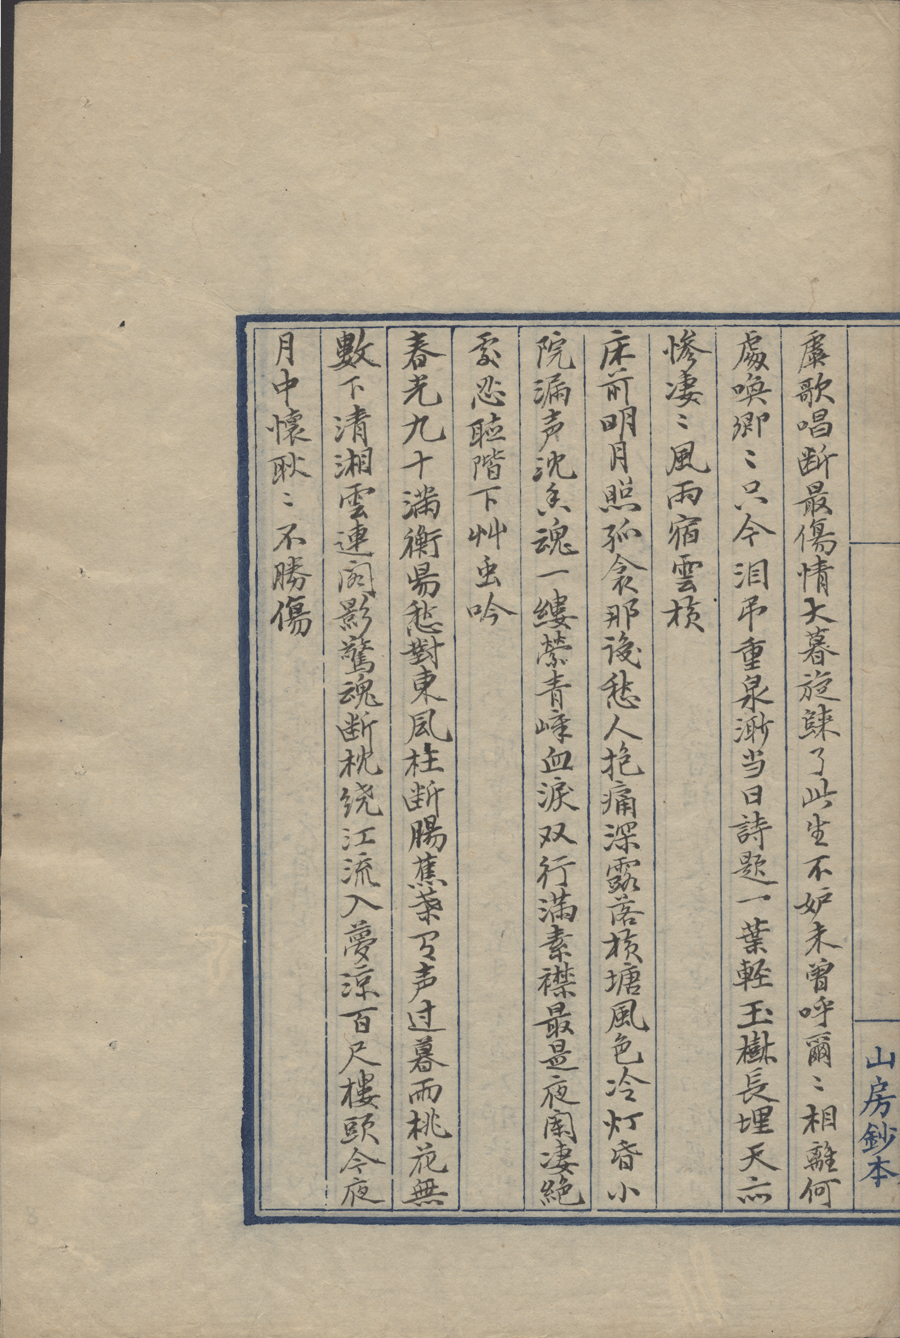 山房鈔本
虞歌唱断最傷情大暮旋了此生不妒未曾呼爾〻相離何
處喚卿〻只今泪吊重泉渺当日詩題一葉軽玉樹長埋天亦
惨凄〻風雨宿雲横
床前明月照孤衾那愁人抱痛深露落横塘風色冷灯昏小
院漏声沈香魂一縷縈青嶂血淚双行滿素襟最是夜闌凄絶
處忍聴階下艸虫吟
春光九十滿衡昜愁對東風枉断腸蕉葉有声过暮雨桃花無
數下清湘雲連閣影驚魂断枕绕江流入夢涼百尺樓頭今夜
月中懷耿〻不勝傷